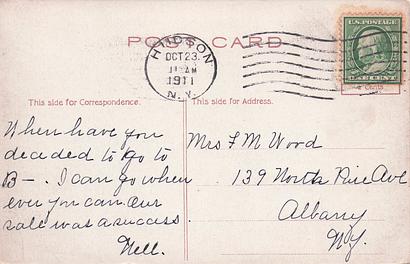 POST CARD
HUDSON
OCT 23
11 AM
1911
N.Y.
U.S. POSTAGE
ONE CENT
This side for Correspondence.
This side for Address.
When have you
decided to go to
B—. I can go when
ever you can. Our
sale was a success.
Nell.
Mrs F M Wood
139 North Pine Ave
Albany
N.Y.